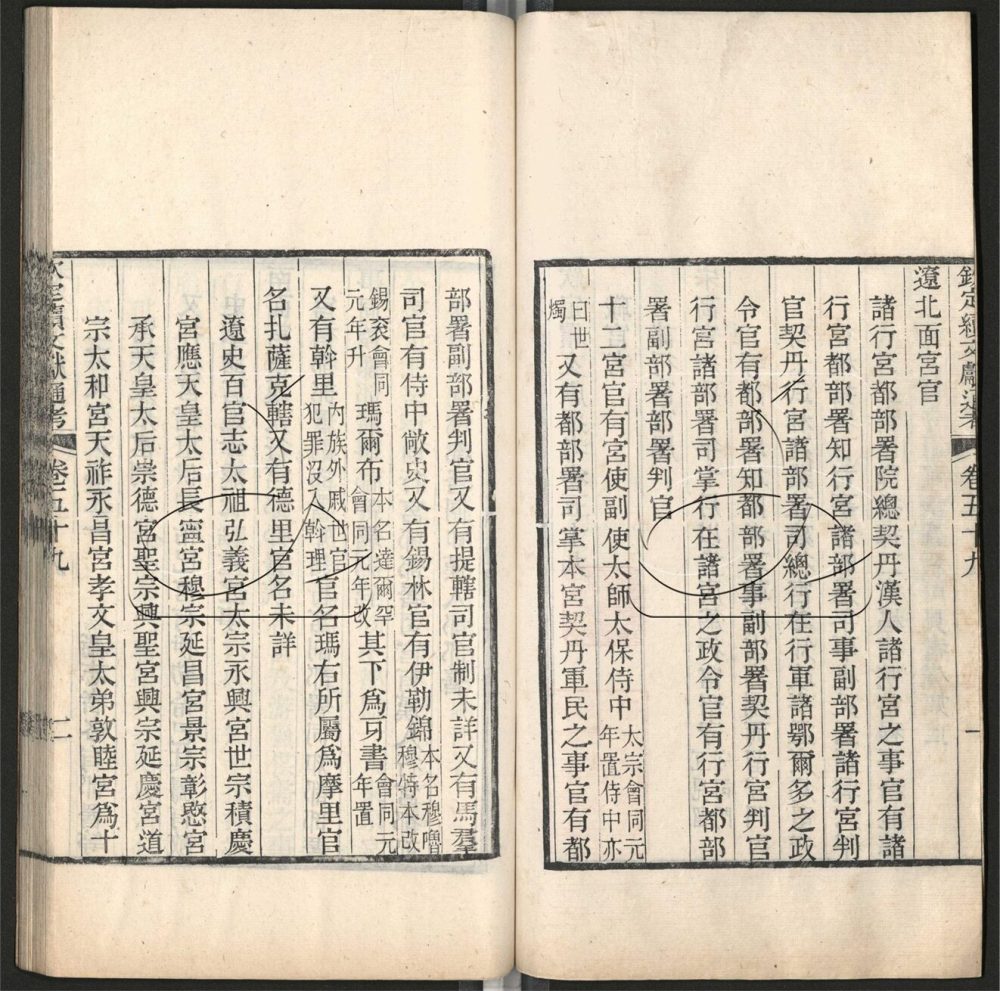 欽定續文獻通考 卷五十九 一
遼北面宮官
諸行宮都部署院總契丹漢人諸行宮之事官有諸
行宮都部署知行宮諸部署司事副部署諸行宮判
官契丹行宮諸部署司總行在行軍諸鄂爾多之政
令官有都部署知都部署事副部署契丹行宮判官
行宮諸部署司掌行在諸宮之政令官有行宮都部
署副部署部署判官
十二宮官有宮使副使太師太保侍中太宗會同元年置侍中亦
曰世燭又有都部署司掌本宮契丹軍民之事官有都
部署副部署判官又有提轄司官制未詳又有馬羣
司官有侍中敞史又有錫林官有伊勒錦本名穆嚕穆特本改
錫袞會同元年升瑪爾布本名達爾罕會同元年改其下爲牙書會同元年置
又有斡里內族外戚世官犯罪沒入斡理官名瑪右所屬爲摩里官
名扎薩克轄又有德里官名未詳
遼史百官志太祖弘義宮太宗永興宮世宗積慶
宮應天皇太后長寧宮穆宗延昌宮景宗彰愍宮
承天皇太后崇德宮聖宗興聖宮興宗延慶宮道
宗太和宮天祚永昌宮孝文皇太弟敦睦宮爲十
欽定續文獻通考 卷五十九 二